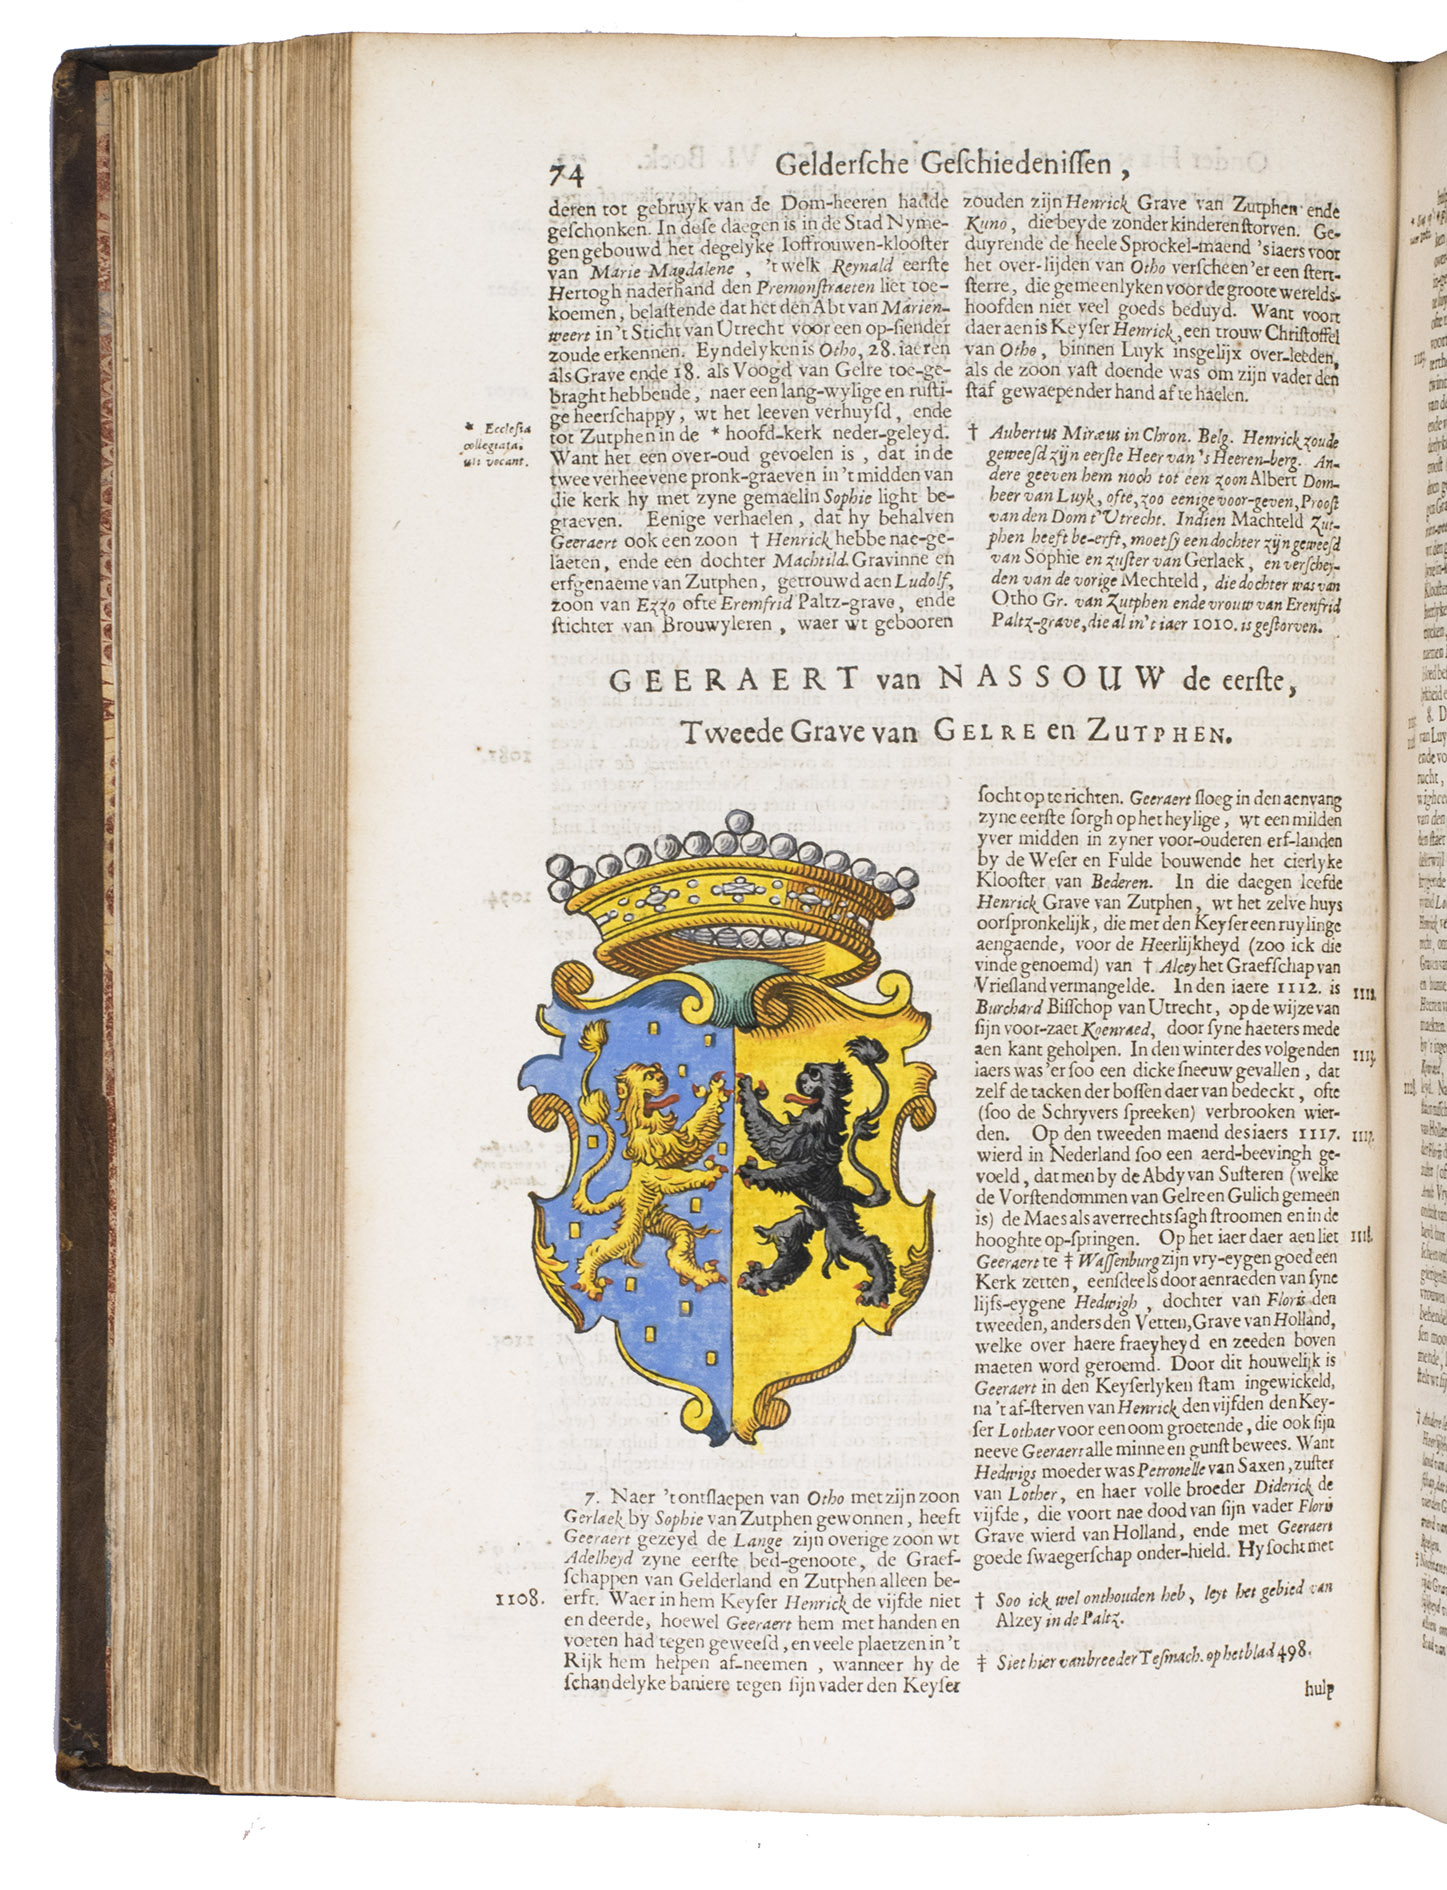 74
Geldersche Geschiedenissen,
deren tot gebruyk van de Dom-heeren hadde
geschonken. In dese daegen is in de Stad Nyme-
gen gebouwd het degelyke Ioffrouwen-klooster
van Marie Magdalene, 't welk Reynald eerste
Hertogh naderhand den Premonstraeten liet toe-
koemen, belastende dat het den Abt van Marien-
weert in 't Sticht van Utrecht voor een op-siender
zoude erkennen. Eyndelyken is Otho, 28. iaeren
als Grave ende 18. als Voogd van Gelre toe-ge-
braght hebbende, naer een lang-wylige en rusti-
ge heerschappy, wt het leeven verhuysd, ende
tot Zutphen in de * hoofd-kerk neder-geleyd.
Want het een over-oud gevoelen is, dat in de
twee verheevene pronk-graeven in 't midden van
die kerk hy met zyne gemaelin Sophie light be-
graeven. Eenige verhaelen, dat hy behalven
Geeraert ook een zoon † Henrick hebbe nae-ge-
laeten, ende een dochter Machtild Gravinne en
erfgenaeme van Zutphen, getrouwd aen Ludolf,
zoon van Ezzo ofte Eremfrid Paltz-grave, ende
stichter van Brouwyleren, waer wt gebooren
* Ecclesia
collegiata.
uti vocant.
zouden zijn Henrick Grave van Zutphen ende
Kuno, die beyde zonder kinderen storven. Ge-
duyrende de heele Sprockel-maend 's iaers voor
het over-lijden van Otho verscheen 'er een stert-
sterre, die gemeenlyken voor de groote werelds-
hoofden niet veel goeds beduyd. Want voort
daer aen is Keyser Henrick, een trouw Christoffel
van Otho, binnen Luyk insgelijx over-leeden,
als de zoon vast doende was om zijn vader den
staf gewaepender hand af te haelen.
† Aubertus Miræus in Chron. Belg. Henrick zoude
geweesd zijn eerste Heer van 's Heeren-berg. An-
dere geeven hem noch tot een zoon Albert Dom-
heer van Luyk, ofte, zoo eenige voor-geven, Proost
van den Dom t' Utrecht. Indien Machteld Zut-
phen heeft be-erft, moet sy een dochter zijn geweesd
van Sophie en zuster van Gerlaek, en verschey-
den van de vorige Mechteld, die dochter was van
Otho Gr. van Zutphen ende vrouw van Erenfrid
Paltz-grave, die al in 't iaer 1010. is gestorven.
GEERAERT van NASSOUW de eerste,
Tweede Grave van GELRE en ZUTPHEN.
7. Naer 't ontslaepen van Otho met zijn zoon
Gerlaek by Sophie van Zutphen gewonnen, heeft
Geeraert gezeyd de Lange zijn overige zoon wt
Adelheyd zyne eerste bed-genoote, de Graef-
schappen van Gelderland en Zutphen alleen be-
1108.
erft. Waer in hem Keyser Henrick de vijfde niet
en deerde, hoewel Geeraert hem met handen en
voeten had tegen geweesd, en veele plaetzen in 't
Rijk hem helpen af-neemen, wanneer hy de
schandelyke baniere tegen sijn vader den Keyser
socht op te richten. Geeraert sloeg in den aenvang
zyne eerste sorgh op het heylige, wt een milden
yver midden in zyner voor-ouderen erf-landen
by de Weser en Fulde bouwende het cierlyke
Klooster van Bederen. In die daegen leefde
Henrick Grave van Zutphen, wt het zelve huys
oorspronkelijk, die met den Keyser een ruylinge
aengaende, voor de Heerlijkheyd (zoo ick die
vinde genoemd) van † Alcey het Graefschap van
Vriesland vermangelde. In den iaere 1112. is
1112.
Burchard Bisschop van Utrecht, op de wijze van
sijn voor-zaet Koenraed, door syne haeters mede
aen kant geholpen. In den winter des volgenden
1113.
iaers was 'er soo een dicke sneeuw gevallen, dat
zelf de tacken der bossen daer van bedeckt, ofte
(soo de Schryvers spreeken) verbrooken wier-
den. Op den tweeden maend des iaers 1117.
1117.
wierd in Nederland soo een aerd-beevingh ge-
voeld, dat men by de Abdy van Susteren (welke
de Vorstendommen van Gelre en Gulich gemeen
is) de Maes als averrechts sagh stroomen en in de
hooghte op-springen. Op het iaer daer aen liet
1118.
Geeraert te ‡ Wassenburg zijn vry-eygen goed een
Kerk zetten, eensdeels door aenraeden van syne
lijfs-eygene Hedwigh, dochter van Floris den
tweeden, anders den Vetten, Grave van Holland,
welke over haere fraeyheyd en zeeden boven
maeten word geroemd. Door dit houwelijk is
Geeraert in den Keyserlyken stam ingewickeld,
na 't af-sterven van Henrick den vijfden den Key-
ser Lothaer voor een oom groetende, die ook sijn
neeve Geeraert alle minne en gunst bewees. Want
Hedwigs moeder was Petronelle van Saxen, zuster
van Lother, en haer volle broeder Diderick de
vijfde, die voort nae dood van sijn vader Floris
Grave wierd van Holland, ende met Geeraert
goede swaegerschap onder-hield. Hy socht met
† Soo ick wel onthouden heb, leyt het gebied van
Alzey in de Paltz.
‡ Siet hier van breeder Tesmach. op het blad 498.
hulp